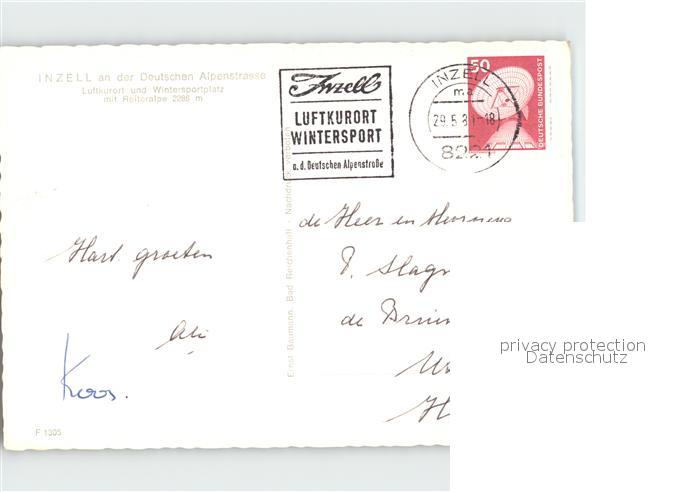 INZELL an der Deutschen Alpenstrasse
Luftkurort und Wintersportplatz
mit Reiteralpe 2286 m
Inzell
LUFTKURORT
WINTERSPORT
a. d. Deutschen Alpenstraße
INZELL
ma
29.5.8
-18
8221
50
DEUTSCHE BUNDESPOST
Ernst Baumann, Bad Reichenhall - Nachdruck verboten
Hart. groeten
Ali
Koos.
de Heer en Mevrouw
P. Slag
de Bruin
F 1305
privacy protection
Datenschutz